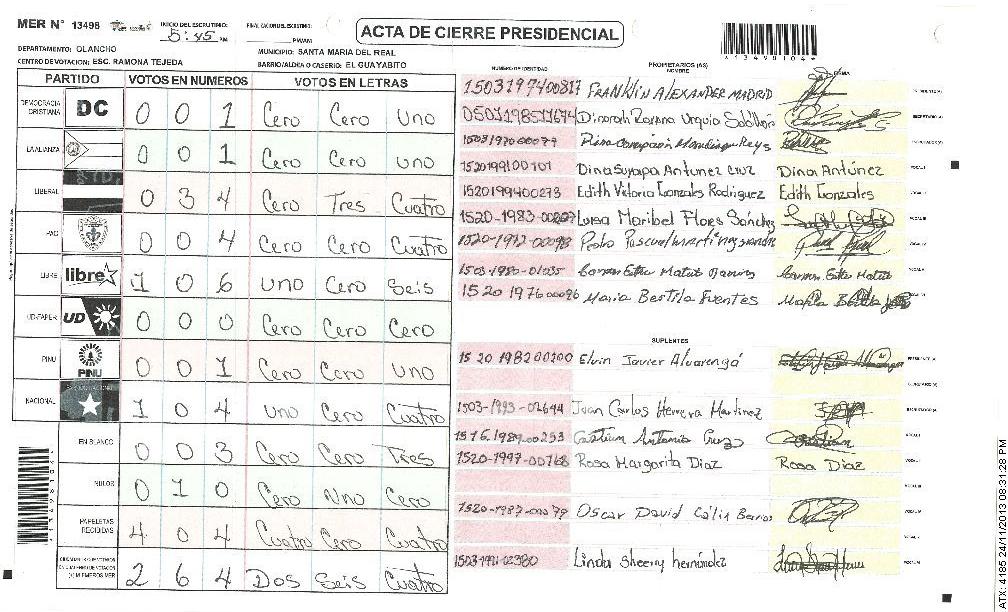 MER Nº 13498
INICIO DEL ESCRUTINIO: 5:45 PM
FINALIZACION DEL ESCRUTINIO: PM/AM
ACTA DE CIERRE PRESIDENCIAL
*13498104*
DEPARTAMENTO: OLANCHO
MUNICIPIO: SANTA MARIA DEL REAL
CENTRO DE VOTACION: ESC. RAMONA TEJEDA
BARRIO/ALDEA O CASERIO: EL GUAYABITO
PARTIDO VOTOS EN NUMEROS VOTOS EN LETRAS
DEMOCRACIA CRISTIANA DC 0 0 1 Cero Cero Uno
LA ALIANZA 0 0 1 Cero Cero Uno
LIBERAL 0 3 4 Cero Tres Cuatro
PAC 0 0 4 Cero Cero Cuatro
LIBRE libre 1 0 6 Uno Cero Seis
UD-FAPER UD 0 0 0 Cero Cero Cero
PINU PINU 0 0 1 Cero Cero Uno
NACIONAL 1 0 4 Uno Cero Cuatro
EN BLANCO 0 0 3 Cero Cero Tres
NULOS 0 1 0 Cero Uno Cero
PAPELETAS RECIBIDAS 4 0 4 Cuatro Cero Cuatro
2 6 4 Dos Seis Cuatro
NUMERO DE IDENTIDAD PROPIETARIOS (AS) NOMBRE FIRMA
1503197400817 FRANKlin ALEXANDER MADRID
0501198511674 Dinorah Urquia
1503197000079
1520199100101 Dina Suyapa Antunez Cruz Dina Antúnez
1520199400273 Edith Vitoria Gonzales Rodriguez Edith Gonzales
1520-1983-00207 Luisa Maribel Flores Sánchez
1520-1972-00098 Pedro Pascual
1503-1980-01035 Carmen Ester Matute Ramires Carmen Ester Matute
1520197600096 Maria Bertila Fuentes
SUPLENTES
1520198200200 Elvin Javier Alvarenga
1503-1993-02644 Juan Carlos Herrera Martinez
1516.1989-00253 Antonio Cruz
1520-1997-00768 Rosa Margarita Diaz Rosa Diaz
1520-1987-00079 Oscar David Cálix
1503-1991-02380 Linda Sheeny hernández
ATX: 4185 24/11/2013 08:31:28 PM